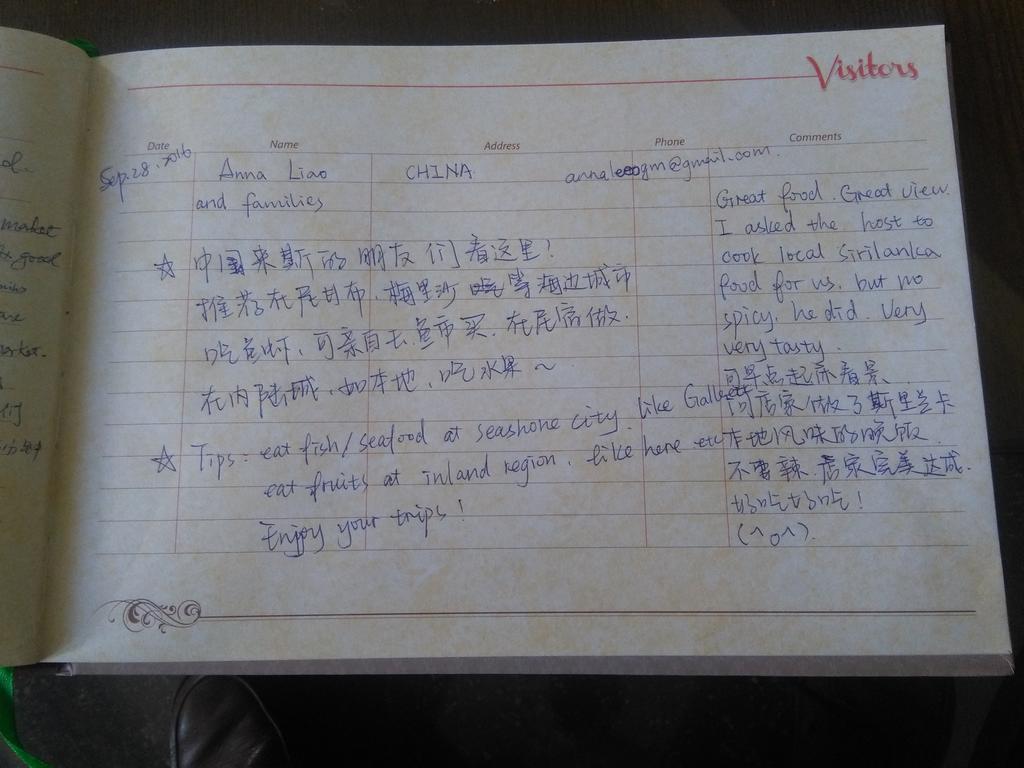 Visitors
Date Name Address Phone Comments
Sep.28.2016 Anna Liao CHINA annaleeogm@gmail.com
and families
Great food. Great view.
I asked the host to
cook local Sirilanka
food for us, but no
spicy, he did. Very
very tasty.
可早点起床看景、
问店家做了斯里兰卡
本地风味的晚饭.
不要辣.店家完美达成.
好吃好吃!
(^o^).
☆ 中国来斯的朋友们看这里!
推荐在尼甘布、梅里沙等海边城市
吃鱼虾、可亲自去鱼市买、在尾店做.
在内陆城、如本地、吃水果~
☆ Tips: eat fish/seafood at seashone city. like Galle etc
eat fruits at inland region, like here etc
Enjoy your trips!
od.
market
good
market.
们